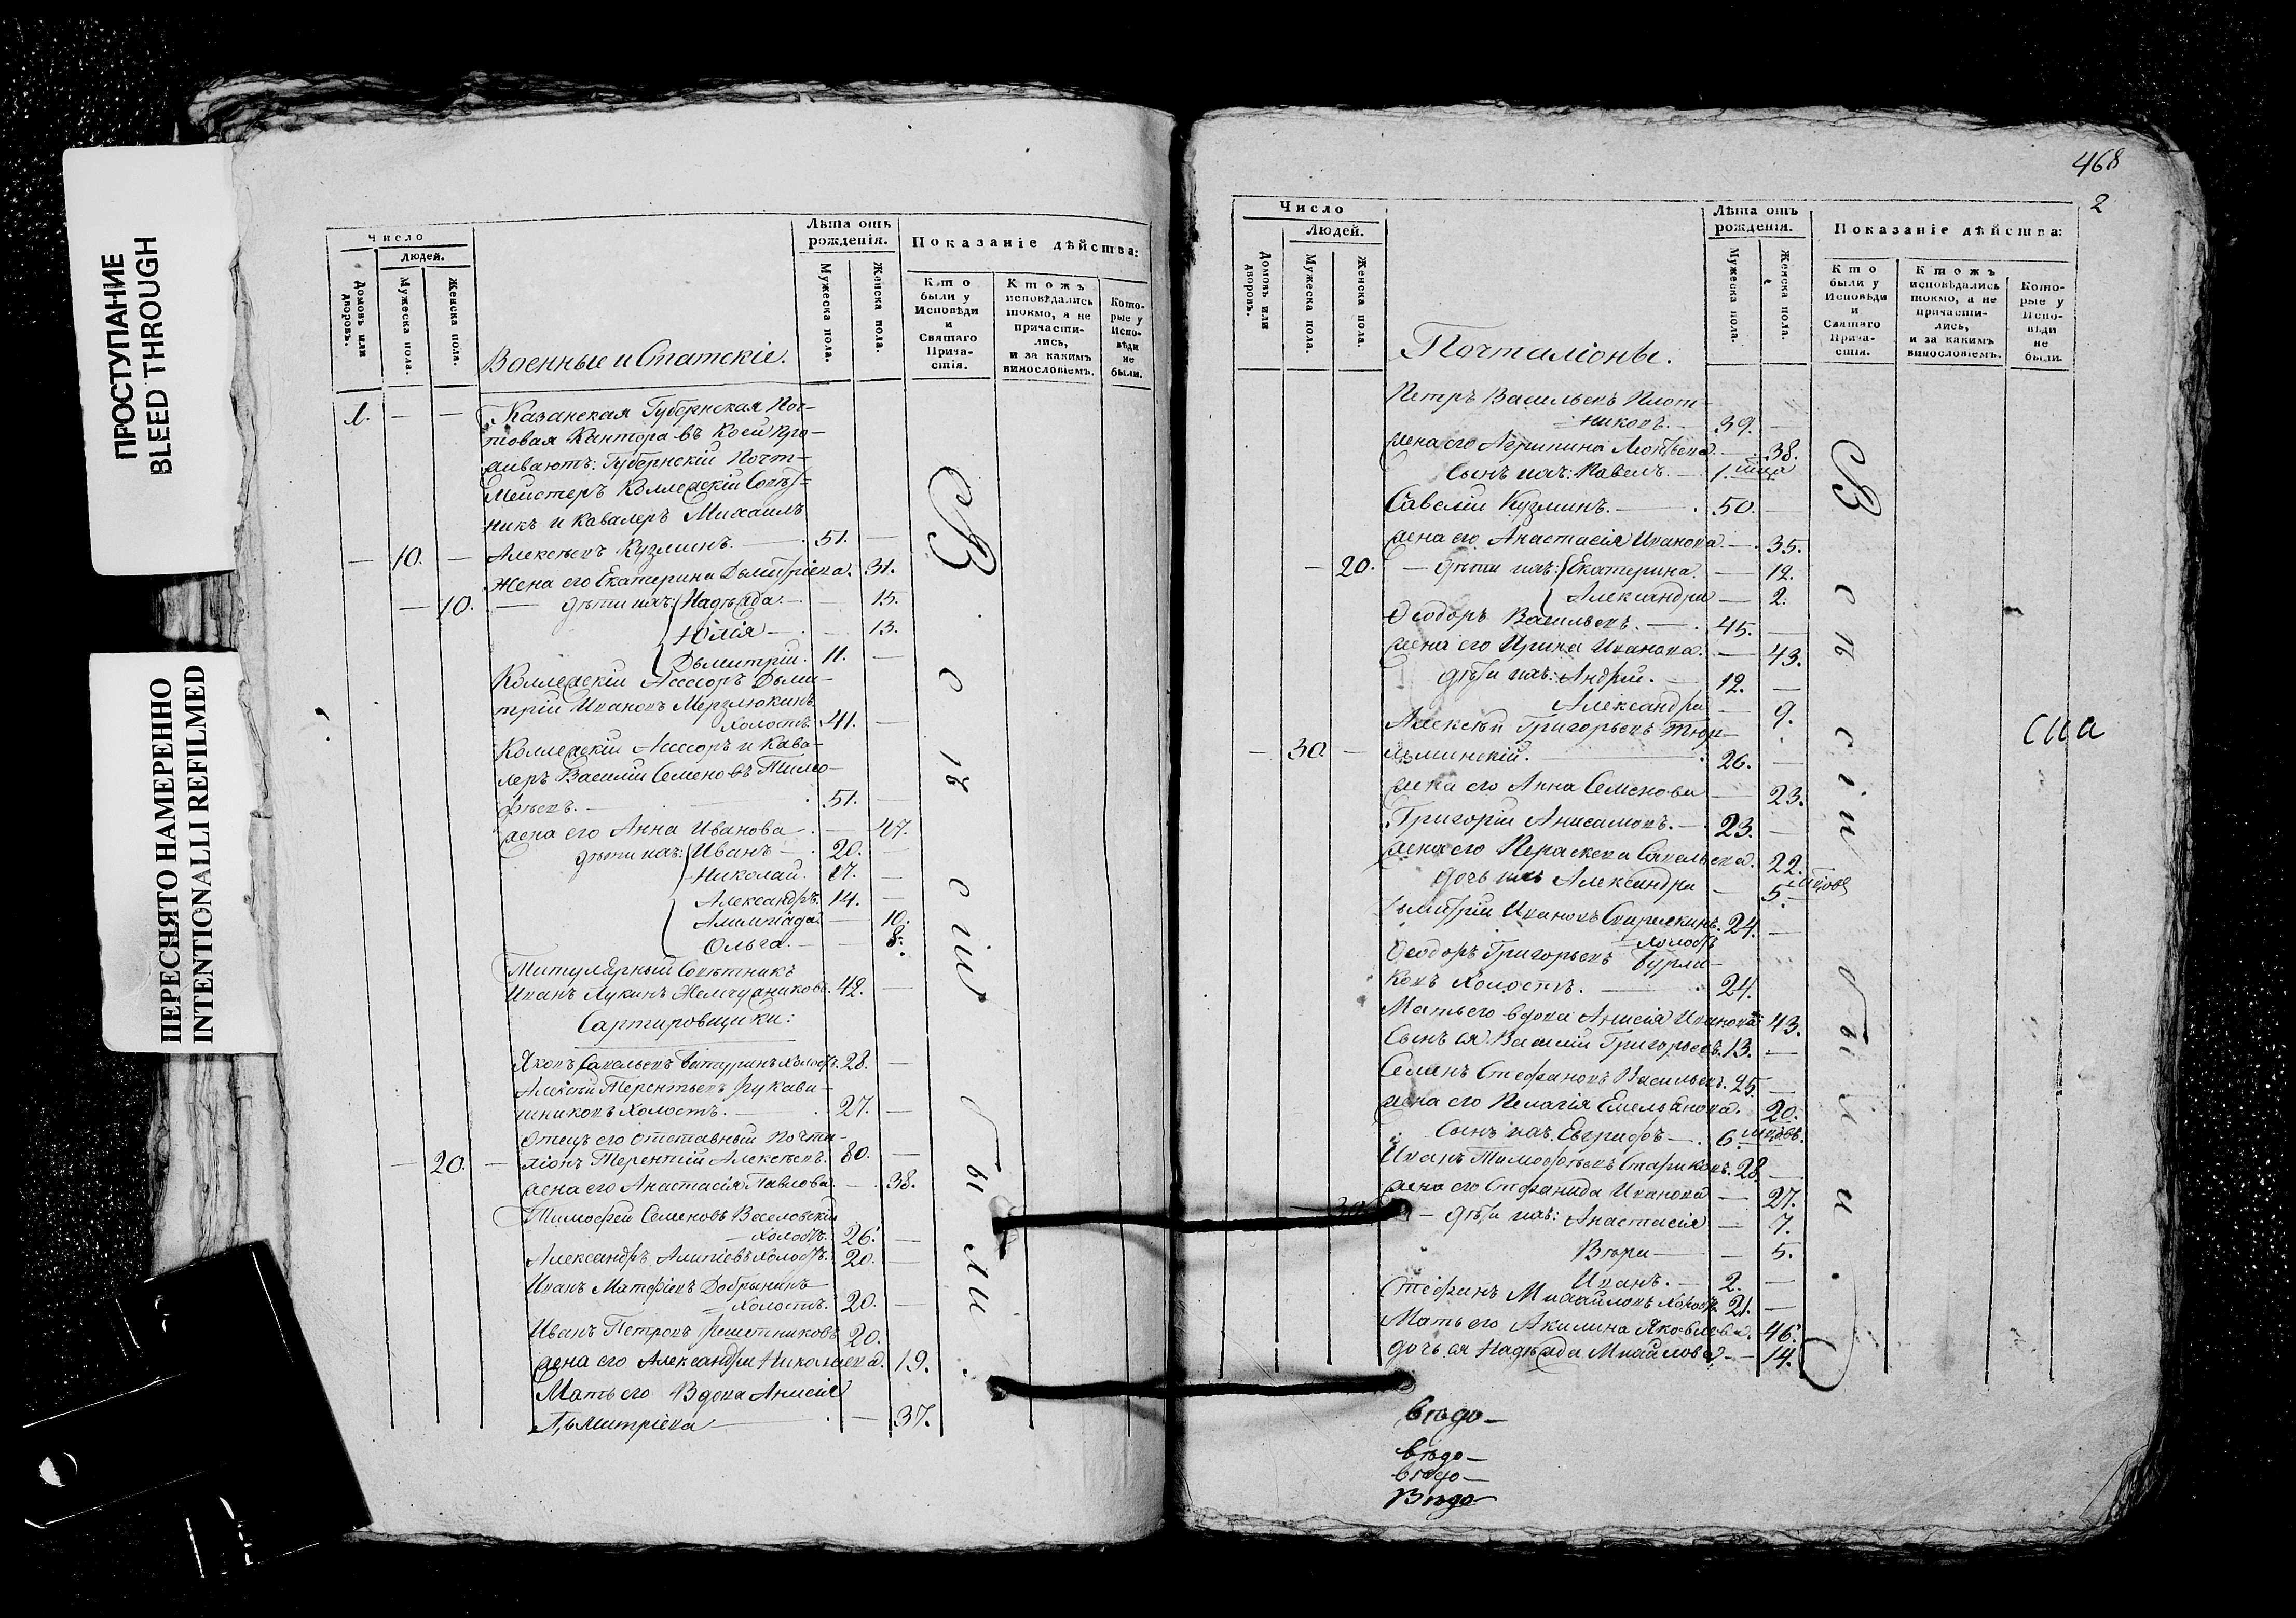 ПРОСТУПАНИЕ
BLEED THROUGH
ПЕРЕСНЯТО НАМЕРЕННО
INTENTIONALLI REFILMED
Число
людей.
Домовъ или дворовъ.
Мужеска пола.
Женска пола.
Военные и Статскіе.
Лѣта отъ рожденія.
Мужеска пола.
Женска пола.
Показаніе дѣйства:
Кто были у Исповѣди и Святаго Прича-стія.
Ктожъ исповѣдались токмо, а не причасти-лись, и за какимъ винословіемъ.
Кото-рые у Испо-вѣди не были.
1. — — Казанская Губернская Поч-
товая Кантора въ коей про-
живаютъ: Губернскій Почт-
мейстеръ Коллежскій Совѣт-
никъ и Кавалеръ Михаилъ
— 10. — Алексѣевъ Кузминъ. — 51. —
Жена его Екатерина Дьмитріева. 31.
— 10. — дѣти ихъ: Надежда. — — 15.
Юлія — — 13.
Дьмитрій. 11. —
Коллежскій Ассесоръ Дьми-
трій Ивановъ Мерзлюкинъ
холостъ. 41. —
Коллежскій Ассесоръ и Кава-
леръ Василій Семеновъ Тимо-
фѣевъ. — 51. —
жена его Анна Иванова — 47.
дѣти ихъ: Иванъ — 20. —
Николай. 17. —
Александръ. 14. —
Алимпіада. — 10.
Ольга. — — 8.
Титулярный Совѣтникъ
Иванъ Лукинъ Жемчужниковъ. 42. —
Сартировщики:
Яковъ Савельевъ Батуринъ холостъ. 28. —
Алексѣй Терентьевъ Рукави-
шниковъ холостъ. — 27. —
Отецъ его отставный Почта-
— 20. — ліонъ Терентій Алексѣевъ. 80. —
жена его Анастасія Павлова. — 38.
Тимофей Семеновъ Веселовскій
холостъ. 26. —
Александръ Алипіевъ холостъ. 20. —
Иванъ Матфіевъ Добрынинъ —
холостъ. 20. —
Иванъ Петровъ Решетниковъ 20.
жена его Александра Николаева. 19.
Мать его Вдова Анисія
Дьмитріева — — 37.
Всѣ сіи были.
468
2
Число
Людей.
Домовъ или дворовъ.
Мужеска пола.
Женска пола.
Почталіоны.
Лѣта отъ рожденія.
Мужеска пола.
Женска пола.
Показаніе дѣйства:
Кто были у Исповѣди и Святаго Прича-стія.
Ктожъ исповѣдались токмо, а не причасти-лись, и за какимъ винословіемъ.
Кото-рые у Испо-вѣди не были.
Петръ Васильевъ Плот-
никовъ. — 39. —
жена его Агрипина Леонтьева — 38.
Сынъ ихъ: Павелъ. — 1.
Савелій Кузминъ. — 50. —
жена его Анастасія Иванова — 35.
— 20. — дѣти ихъ: Екатерина. — 12.
Александра — 2.
Ѳеодоръ Васильевъ. — 45. —
жена его Ирина Иванова. — 43.
дѣти ихъ: Андрей. 12. —
Александра — 9.
Алексѣй Григорьевъ Тюр-
— 30. — леминскій. — 26. —
жена его Анна Семенова — 23.
Григорій Анисимовъ. — 23. —
жена его Параскева Савельева. 22.
дочь ихъ Александра — 5.
Дьмитрій Ивановъ 24. —
холостъ
Ѳеодоръ Григорьевъ Бурла-
ковъ холостъ. — 24.
Мать его вдова Анисія Иванова 43.
Сынъ ея Василій Григорьевъ. 13. —
Семенъ Стефановъ Васильевъ. 25. —
жена его Пелагія Емельянова. 20.
Сынъ ихъ Евграфъ — 6
Иванъ Тимофѣевъ Стариковъ. 28. —
жена его Стефанида Иванова — 27.
— дѣти ихъ: Анастасія — 7.
Вѣра — — 5.
Иванъ. — 2. —
Стефанъ Михайловъ холостъ. 21. —
Мать его Акилина Яковлева. 46.
дочь ея Надежда Михайлова — 14.
Всѣ сіи были.
сиа
вѣдо—
вѣдо—
вѣдо—
Вѣдо—